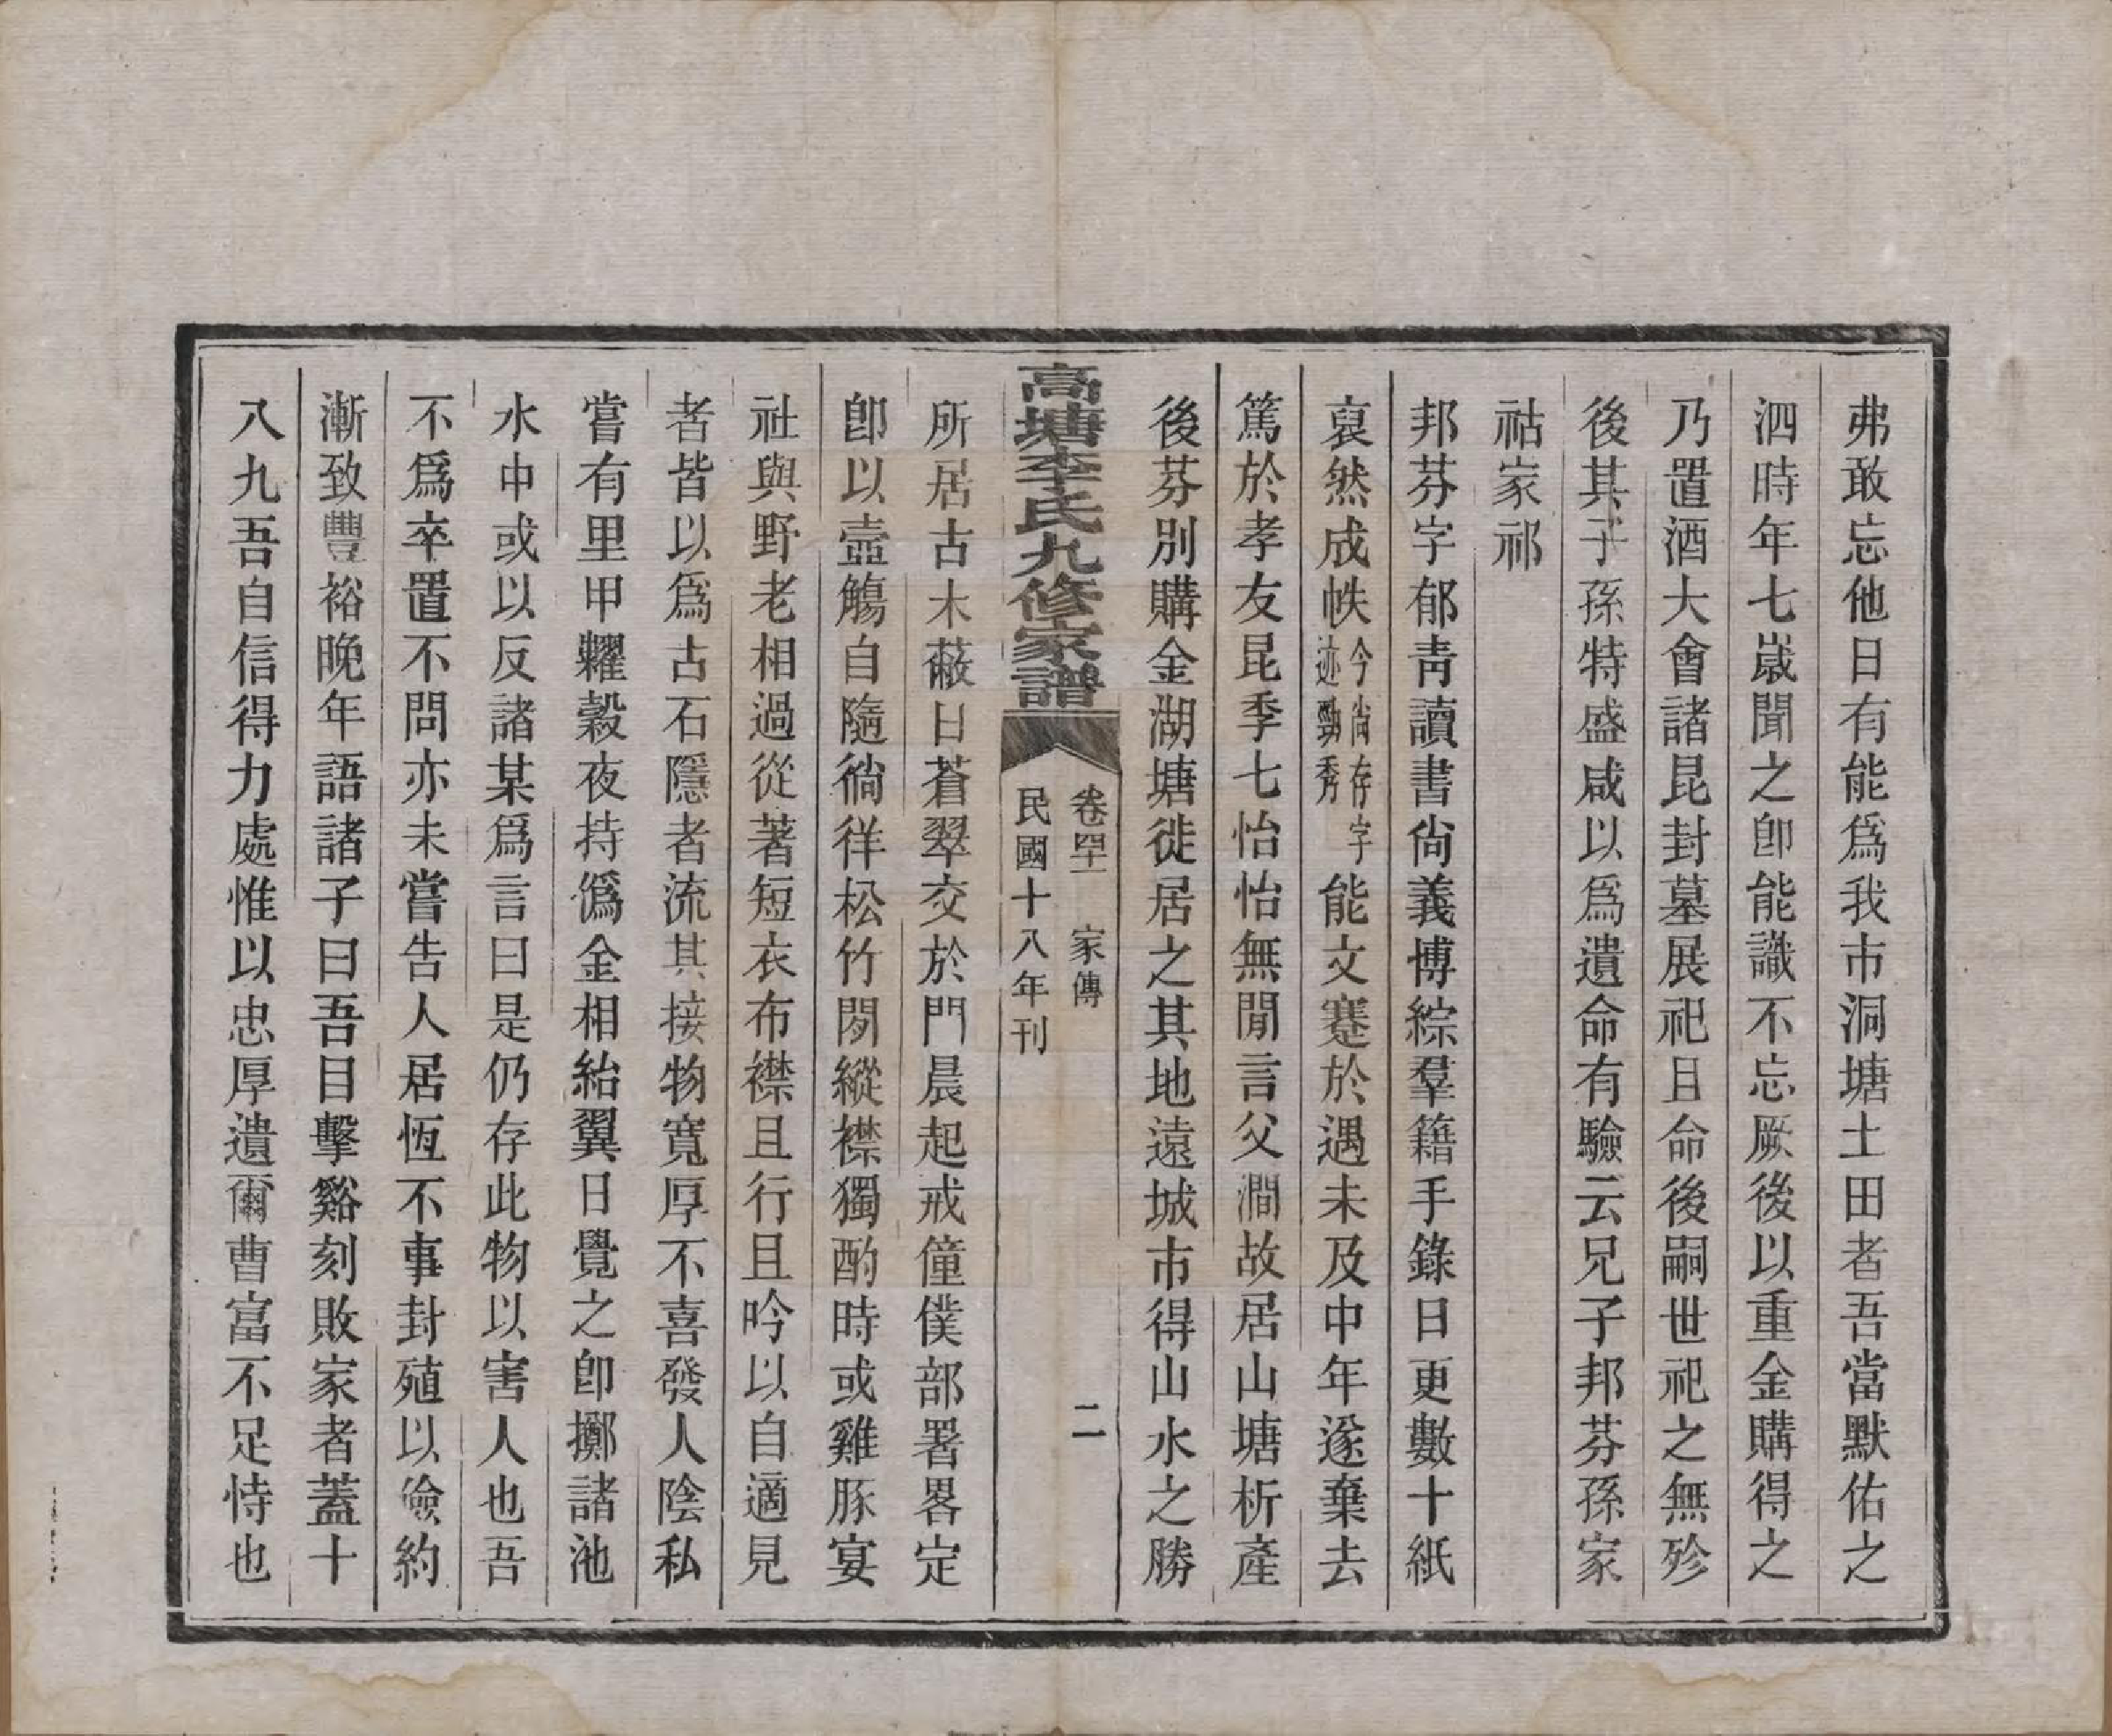 弗敢忘他日有能爲我市洞塘土田者吾當默佑之
泗時年七歲聞之卽能識不忘厥後以重金購得之
乃置酒大會諸昆封墓展祀且命後嗣世祀之無殄
後其子孫特盛咸以爲遺命有驗云兄子邦芬孫家
祜家祁
邦芬字郁靑讀書尙義博綜羣籍手錄日更數十紙
裒然成帙今尙存字迹勁秀能文蹇於遇未及中年遂棄去
篤於孝友昆季七怡怡無閒言父澗故居山塘析產
後芬別購金湖塘徙居之其地遠城市得山水之勝
高塘李氏九修家譜
卷四十一 家傳
二
民國十八年刊
所居古木蔽日蒼翠交於門晨起戒僮僕部署畧定
卽以壺觴自隨徜徉松竹閒縱襟獨酌時或雞豚宴
社與野老相過從著短衣布襟且行且吟以自適見
者皆以爲古石隱者流其接物寬厚不喜發人陰私
嘗有里甲糶穀夜持僞金相紿翼日覺之卽擲諸池
水中或以反諸某爲言曰是仍存此物以害人也吾
不爲卒置不問亦未嘗告人居恆不事封殖以儉約
漸致豐裕晚年語諸子曰吾目擊谿刻敗家者蓋十
八九吾自信得力處惟以忠厚遺爾曹富不足恃也